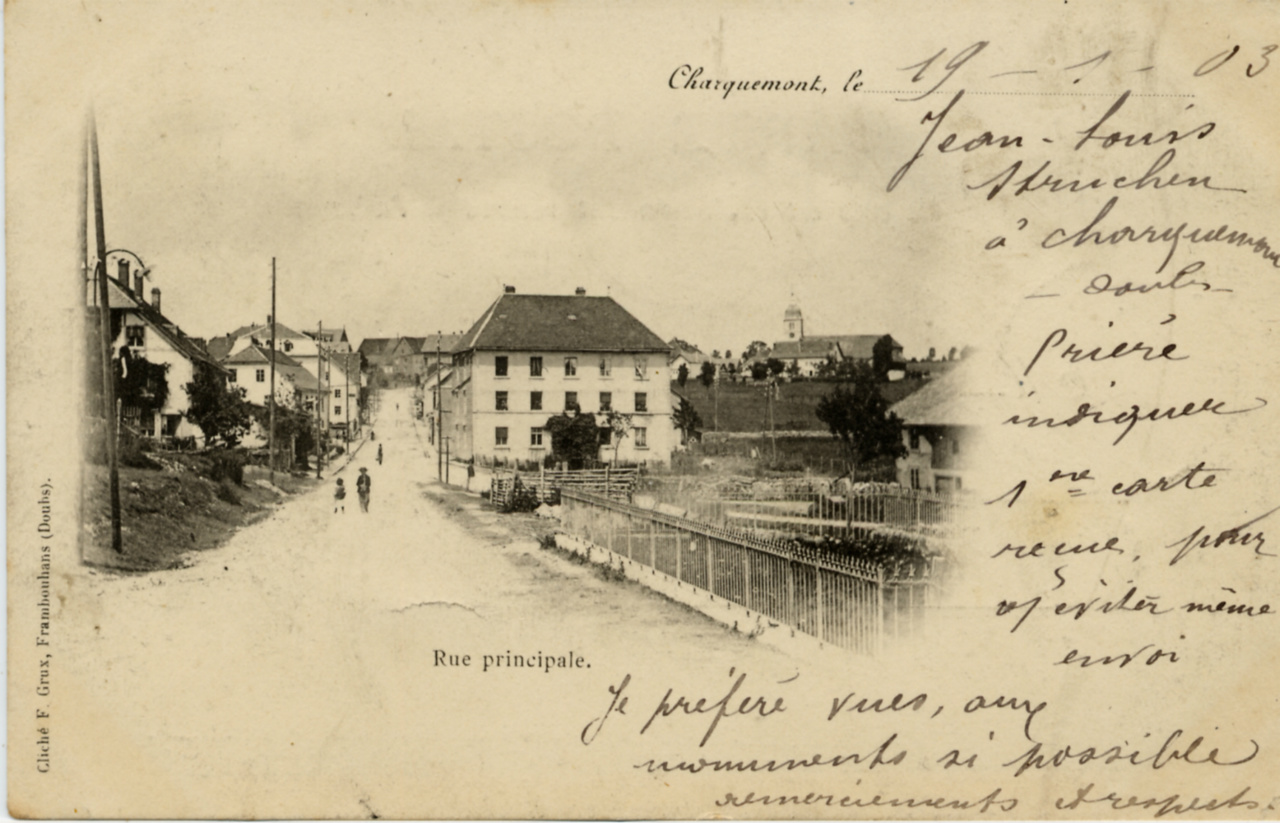 Charquemont, le 19 - 1 - 03
Jean-Louis
Struchen
à Charquemont
- Doubs -
Prière
indiquer
1re carte
recue, pour
éviter même
envoi
Je préfère vues, aux
monuments si possible
remerciements et respects.
Rue principale.
Cliché F. Grux, Frambouhans (Doubs).